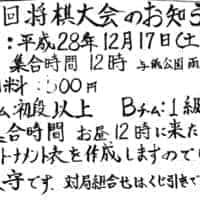 回将棋大会のお知ら
:平成28年12月17日(土
集合時間 12時 与儀公園
料:500円
ム:初段以上 Bチーム:1級
合時間 お昼12時に来た
トナメント表を作成しますので
守です。対局組合せはくじ引きで